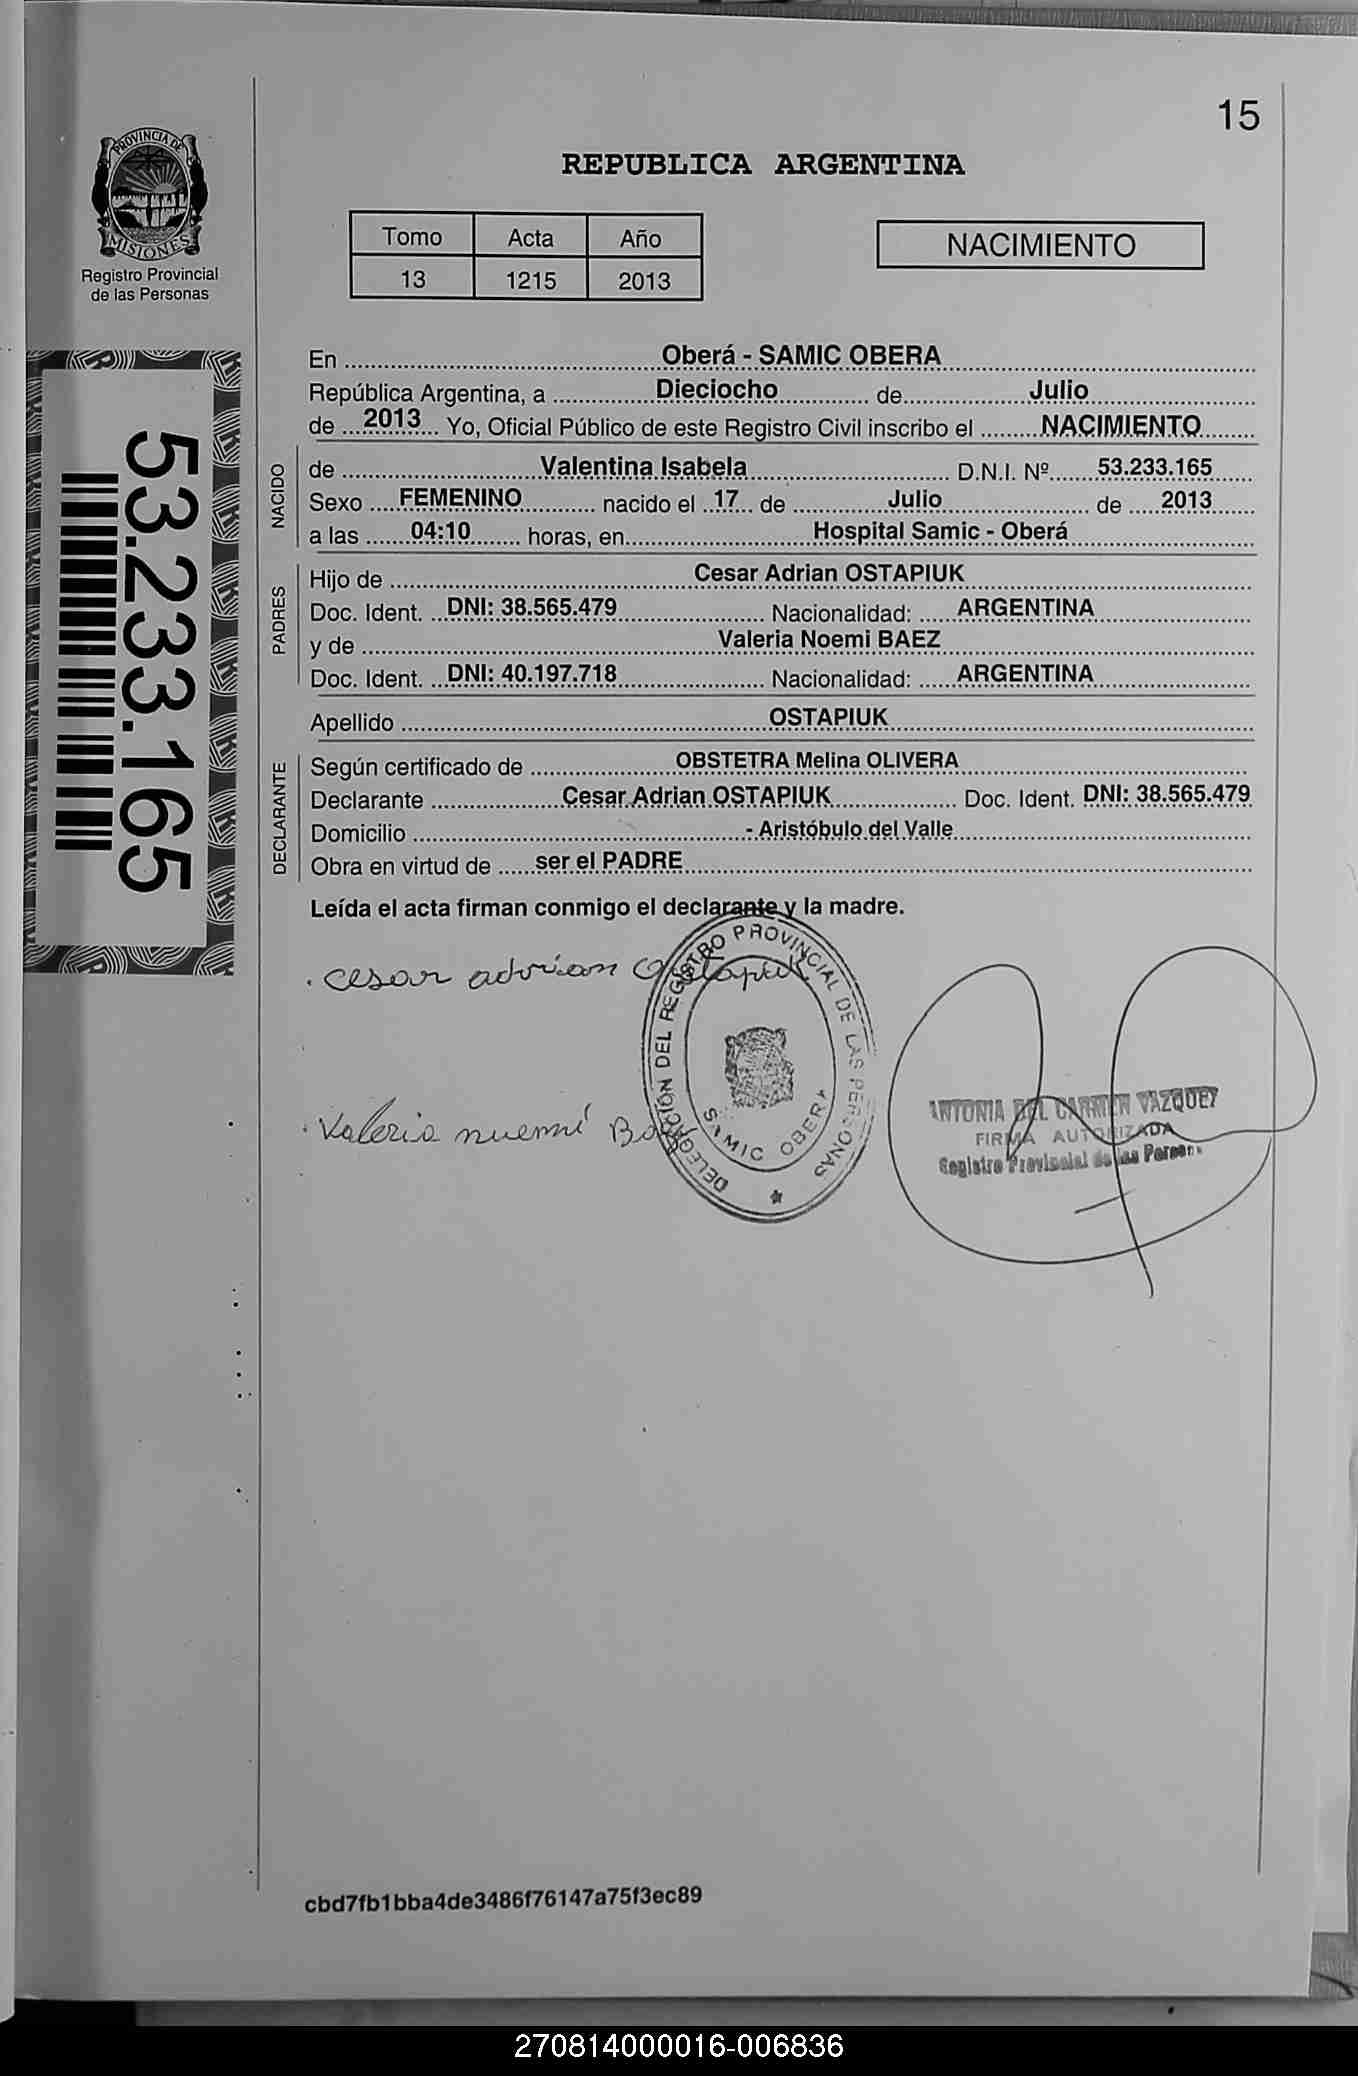 15
PROVINCIA DE
MISIONES
Registro Provincial
de las Personas
REPUBLICA ARGENTINA
Tomo Acta Año
13 1215 2013
NACIMIENTO
53.233.165
En Oberá - SAMIC OBERA
República Argentina, a Dieciocho de Julio
de 2013 Yo, Oficial Público de este Registro Civil inscribo el NACIMIENTO
NACIDO
de Valentina Isabela D.N.I. Nº 53.233.165
Sexo FEMENINO nacido el 17 de Julio de 2013
a las 04:10 horas, en Hospital Samic - Oberá
PADRES
Hijo de Cesar Adrian OSTAPIUK
Doc. Ident. DNI: 38.565.479 Nacionalidad: ARGENTINA
y de Valeria Noemi BAEZ
Doc. Ident. DNI: 40.197.718 Nacionalidad: ARGENTINA
Apellido OSTAPIUK
DECLARANTE
Según certificado de OBSTETRA Melina OLIVERA
Declarante Cesar Adrian OSTAPIUK Doc. Ident. DNI: 38.565.479
Domicilio - Aristóbulo del Valle
Obra en virtud de ser el PADRE
Leída el acta firman conmigo el declarante y la madre.
cesar adrian Ostapiuk
DELEGACIÓN DEL REGISTRO PROVINCIAL DE LAS PERSONAS
SAMIC OBERA
Valeria nuemí Baez
ANTONIA DEL CARMEN VAZQUEZ
FIRMA AUTORIZADA
Registro Provincial de las Person
cbd7fb1bba4de3486f76147a75f3ec89
270814000016-006836